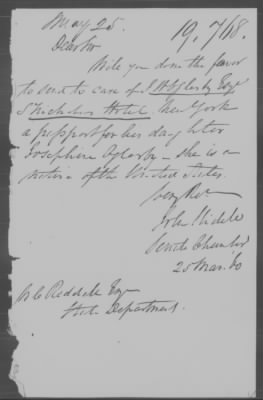 May 25. 19,718.
Dear Sir
Will you do me the favor
to send to care of Esqr
St Nicholas Hotel New York
a passport for her daughter
Josephine Oglesby - she is a
native of the United States.
Very Res
John Slidell
Senate Chamber
25 Mar. 60
Esqr
State Department.